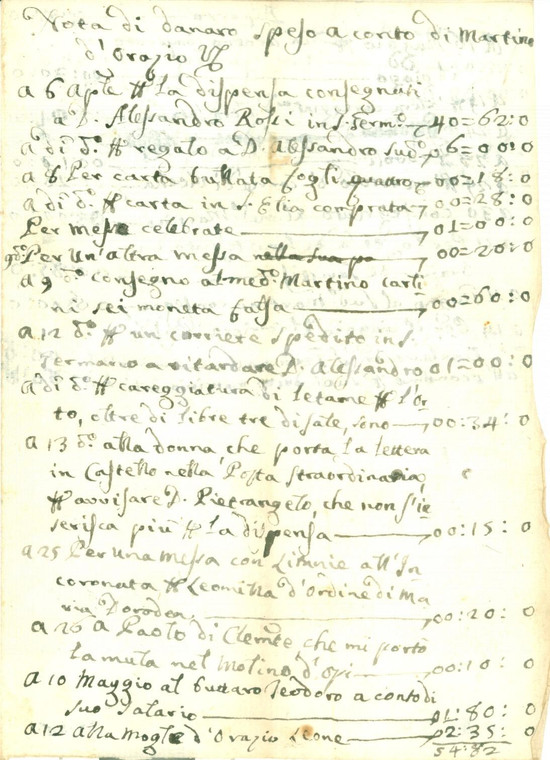 Nota di danaro speso a conto di Martino
d'Orazio
a 6 Aple la dispensa consegnati
a D. Alessandro Rossi in S. Germo 40=62:0
a di do regalo a D. Alessandro sudo 6=00:0
a 8 Per carta bullata fogli quattro 00=18:0
a di do carta in S. Elia comprata 00=28:0
Per messe celebrate 01=00:0
Per un'altra messa nella sua 00=20:0
a 9 do consegno al medo Martino carli
ni sei moneta falsa 00=60:0
a 12 do un corriere spedito in S.
Germano a ritardare D. Alessandro 01=00:0
a di do careggiatura di letame l'or
to, oltre di libre tre di sale, sono 00:34:0
a 13 do alla donna che porta la lettera
in Castello nella Posta straordinaria,
avvisare D. Pietrangelo, che non s'in
serisca più la dispensa 00:15:0
a 25 Per una messa con Litanie all'In
coronata Leomilla d'ordine di Ma
ria Dorodea 00:20:0
a 26 a Paolo di Clemte, che mi portò
la mula nel Molino d'Opi 00:10:0
a 10 Maggio al buttaro Teodoro a conto di
suo salario 01:80:0
a 12 alla mogle d'Orazio Leone 02:35:0
54:82